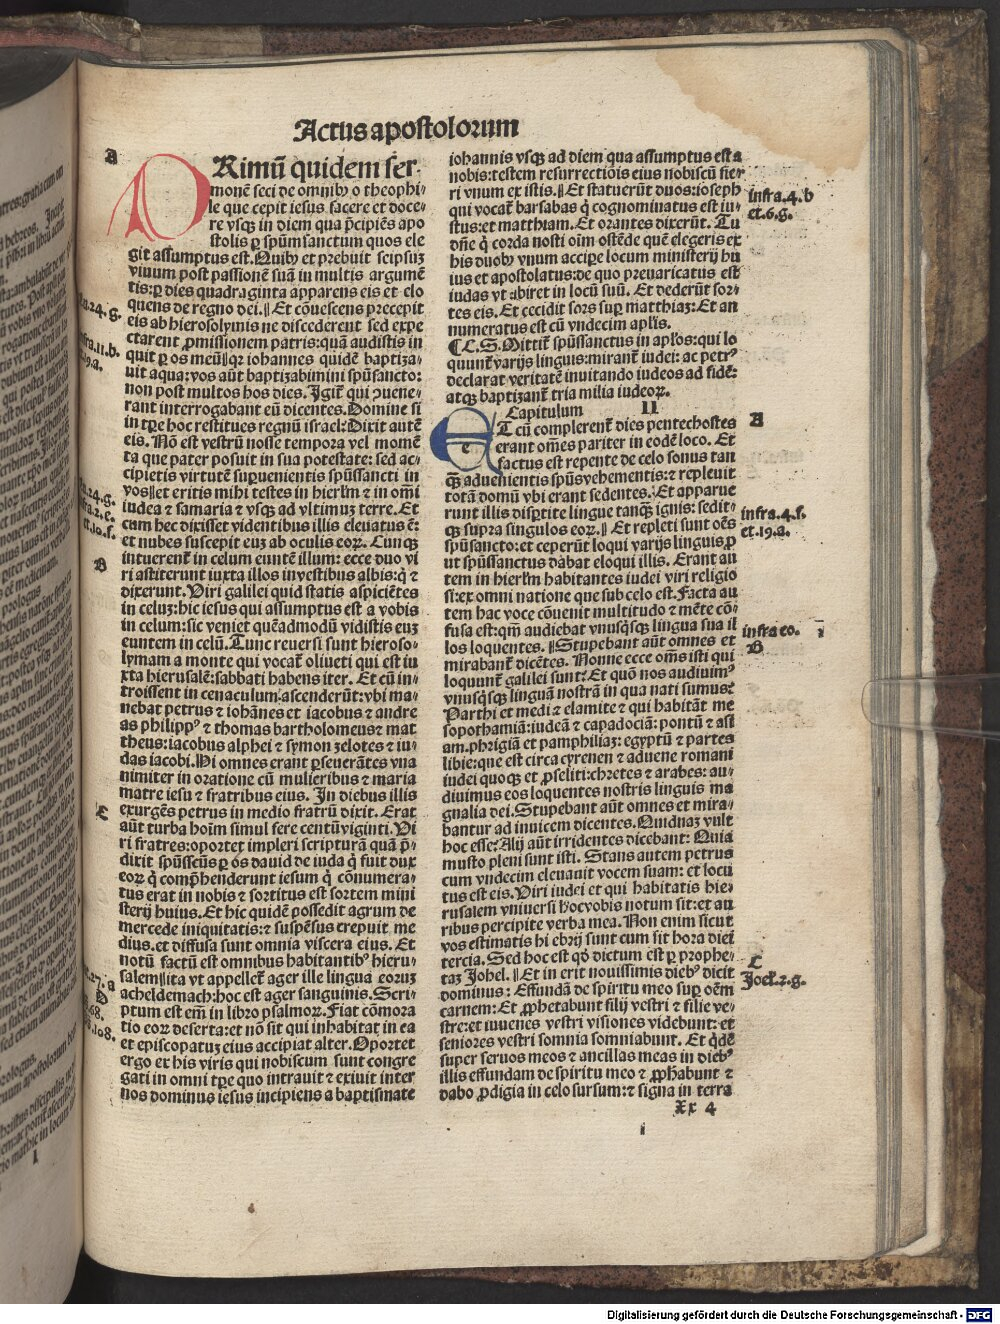 Actus apostolorum
A
PRimū quidem ser-
monē feci de omnibꝰ o theophi-
le que cepit iesus facere et doce-
re vsqꝫ in diem qua p̄cipiēs apo
stolis ꝑ spūm sanctum quos ele
git assumptus est. Quibꝰ et prebuit seipsuꝫ
viuum post passionē suā in multis argumē
tis: ꝑ dies quadraginta apparens eis et elo
quens de regno dei. ‖ Et cōuescens precepit
eis ab hierosolymis ne discederent sed expe
ctarent ꝓmissionem patris: quā audistis in
quit ꝑ os meū ‖ qꝛ iohannes quidē baptiza-
uit aqua: vos aūt baptizabimini spūsancto:
non post multos hos dies. Igit̄ qui ɔuene-
rant interrogabant eū dicentes. Domine si
in tꝑe hoc restitues regnū israel: Dixit autē
eis. Nō est vestrū nosse tempora vel momē
ta que pater posuit in sua potestate: sed ac-
cipietis virtutē suꝑuenientis spūssancti in
vos ‖ et eritis mihi testes in hierl̄m ⁊ in om̄i
iudea ⁊ samaria ⁊ vsqꝫ ad vltimuꝫ terre. Et
cum hec dixisset videntibus illis eleuatus ē:
et nubes suscepit euꝫ ab oculis eoꝝ. Cunqꝫ
intuerent̄ in celum euntē illum: ecce duo vi
ri astiterunt iuxta illos in vestibus albis: q̇ ⁊
dixerunt. Viri galilei quid statis aspiciētes
in celuꝫ: hic iesus qui assumptus est a vobis
in celum: sic veniet quēadmodū vidistis euꝫ
euntem in celū. Tunc reuersi sunt hieroso-
lymam a monte qui vocat̄ oliueti qui est iu
xta hierusalē: sabbati habens iter. Et cū in-
troissent in cenaculum: ascenderūt: vbi ma-
nebat petrus ⁊ iohānes et iacobus ⁊ andre
as philippꝰ ⁊ thomas bartholomeus ⁊ mat
theus: iacobus alphei ⁊ symon zelotes ⁊ iu-
das iacobi. Hi omnes erant ꝑseuerātes vna
nimiter in oratione cū mulieribus ⁊ maria
matre iesu ⁊ fratribus eius. In diebus illis
exurgēs petrus in medio fratrū dixit. Erat
aūt turba hoīm simul fere centū viginti. Vi
ri fratres: oportet impleri scripturā quā p̄-
dixit spūsscūs ꝑ os dauid de iuda q̇ fuit dux
eoꝝ q̇ comp̄henderunt iesum q̇ cōnumera-
tus erat in nobis ⁊ sortitus est sortem mini
sterij huius. Et hic quidē possedit agrum de
mercede iniquitatis: ⁊ suspēsus crepuit me
dius. et diffusa sunt omnia viscera eius. Et
notū factū est omnibus habitantibꝰ hieru-
salem ‖ ita vt appellet̄ ager ille lingua eoruꝫ
acheldemach: hoc est ager sanguinis. Scri-
ptum est em̄ in libro psalmoꝝ. Fiat cōmora
tio eoꝝ deserta: et nō sit qui inhabitat in ea
et episcopatuꝫ eius accipiat alter. Oportet
ergo ex his viris qui nobiscum sunt congre
gati in omni tꝑe quo intrauit ⁊ exiuit inter
nos dominus iesus incipiens a baptismate
B
C
D
iohannis vsqꝫ ad diem qua assumptus est a
nobis: testem resurrectiōis eius nobiscū fie-
ri vnum ex istis. ‖ Et statuerūt duos: ioseph
qui vocat̄ barsabas q̇ cognominatus est iu-
stus: et matthiam. Et orantes dixerūt. Tu
dn̄e q̇ corda nosti oīm ostēde quē elegeris ex
his duobꝰ vnum accipe locum ministerij hu
ius et apostolatus: de quo preuaricatus est
iudas vt abiret in locū suū. Et dederūt sor-
tes eis. Et cecidit sors suꝑ matthiaꝫ: Et an
numeratus est cū vndecim apl̄is.
¶ C. S. Mittit̄ spūssanctus in apl̄os: qui lo
quunt̄ varijs linguis: mirant̄ iudei: ac petrꝰ
declarat veritatē inuitando iudeos ad fidē:
atqꝫ baptizant̄ tria milia iudeoꝝ.
Capitulum II
ET cū complerent̄ dies pentechostes
erant oēs pariter in eodē loco. Et
factus est repente de celo sonus tan
qꝫ aduenientis spūs vehementis: ⁊ repleuit
totā domū vbi erant sedentes. Et apparue
runt illis disꝑtite lingue tanqꝫ ignis: sedit-
qꝫ supra singulos eoꝝ. ‖ Et repleti sunt oēs
spūsancto: et ceperūt loqui varijs linguis ꝓ
ut spūssanctus dabat eloqui illis. Erant au
tem in hierl̄m habitantes iudei viri religio
si: ex omni natione que sub celo est. Facta au
tem hac voce cōuenit multitudo ⁊ mēte cō-
fusa est: qm̄ audiebat vnusq̇sqꝫ lingua sua il
los loquentes. ‖ Stupebant aūt omnes et
mirabant̄ dicētes. Nonne ecce om̄s isti qui
loquunt̄ galilei sunt: Et quō nos audiuimꝰ
vnusq̇sqꝫ linguā nostrā in qua nati sumus:
Parthi et medi ⁊ elamite ⁊ qui habitāt me
sopothamiā: iudeā ⁊ capadociā: pontū ⁊ asi
am. phrigiā et pamphiliaꝫ: egyptū ⁊ partes
libie: que est circa cyrenen ⁊ aduene romani
iudei quoqꝫ et ꝓseliti: chretes ⁊ arabes: au-
diuimus eos loquentes nostris linguis ma
gnalia dei. Stupebant aūt omnes et mira-
bantur ad inuicem dicentes. Quidnaꝫ vult
hoc esse: Alij aūt irridentes dicebant: Quia
musto pleni sunt isti. Stans autem petrus
cum vndecim eleuauit vocem suam: et locu
tus est eis. Viri iudei et qui habitatis hie-
rusalem vniuersi hoc vobis notum sit: et au
ribus percipite verba mea. Non enim sicut
vos estimatis hi ebrij sunt cum sit hora diei
tercia. Sed hoc est qd̄ dictum est ꝑ prophe-
taꝫ Johel. ‖ Et in erit nouissimis diebꝰ dicit
dominus: Effundā de spiritu meo suꝑ oēm
carnem: Et ꝓphetabunt filij vestri ⁊ filie ve-
stre: et iuuenes vestri visiones videbunt: et
seniores vestri somnia somniabunt. Et q̇dē
super seruos meos ⁊ ancillas meas in diebꝰ
illis effundam de spiritu meo ⁊ ꝓphabunt ⁊
dabo ꝓdigia in celo sursum: ⁊ signa in terra
infra.4.b
et.6.g.
A
infra.4.f.
et.19.a.
infra eo.
B
C
Joel.2.g.
Xx 4
i
Digitalisierung gefördert durch die Deutsche Forschungsgemeinschaft - DFG